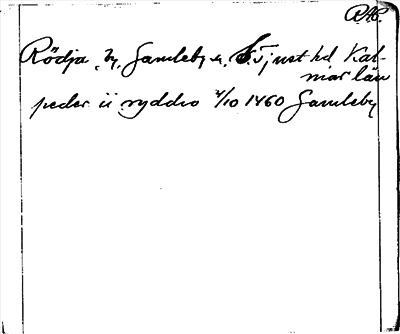 RAP.
Rödja, by, Gamleby s. S. Tjust hd Kal-
mar län
peder ii ryddro 4/10 1460 Gamleby